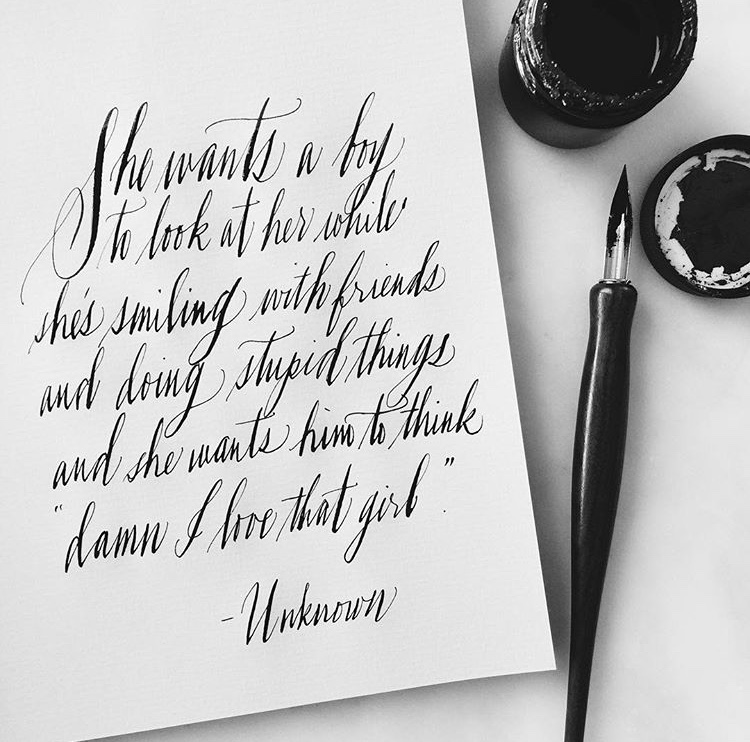 She wants a boy
to look at her while
she's smiling with friends
and doing stupid things
and she wants him to think
"damn I love that girl".
-Unknown